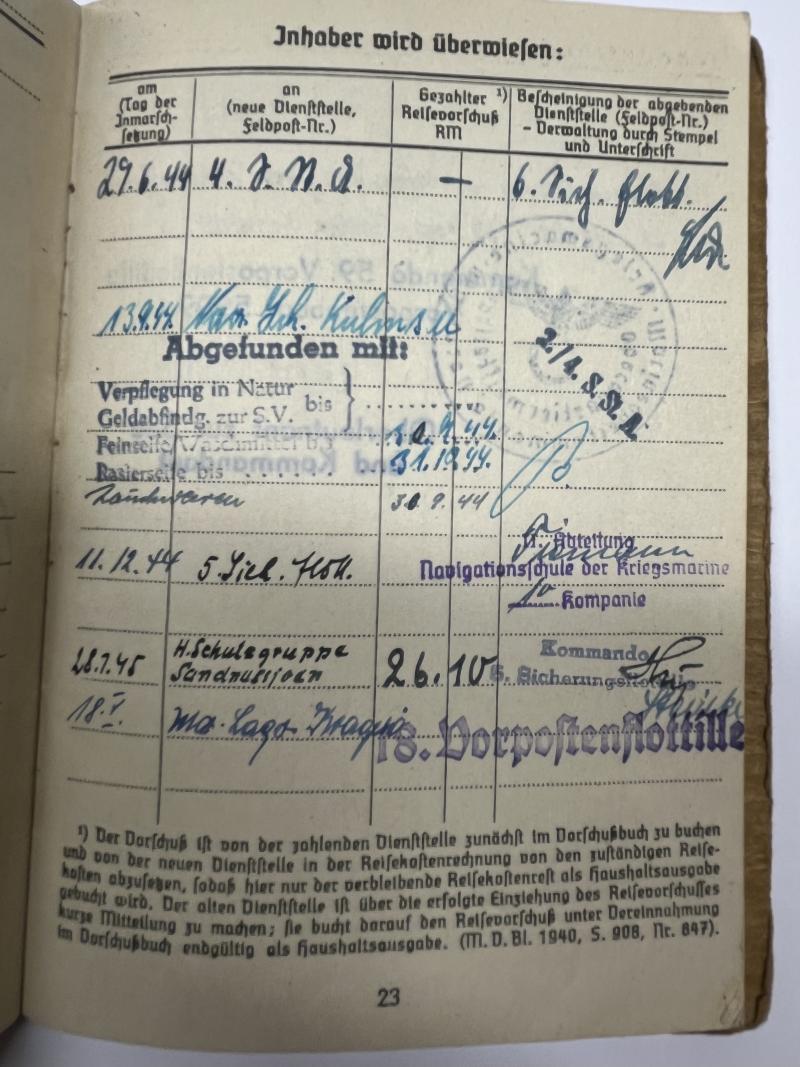 Inhaber wird überwiesen:
am
(Tag der
Inmarsch-
setzung)
an
(neue Dienststelle,
Feldpost-Nr.)
Gezahlter ¹)
Reisevorschuß
RM
Bescheinigung der abgebenden
Dienststelle (Feldpost-Nr.)
– Verwaltung durch Stempel
und Unterschrift
29.6.44 4. S. St. A. — 6. Sich. flott.
13.9.44 Nav. Sch.
2./4. S. St. A.
Abgefunden mit:
Verpflegung in Natur
Geldabfindg. zur S.V. bis
Feinseife/Waschmittel bis 30.9.44
Rasierseife bis 31.10.44.
Rauchwaren 30.9.44
II. Abteilung
11.12.44 5. Sich. flott. Navigationsschule der Kriegsmarine
10 Kompanie
28.1.45 H. Schulsgruppe 26.10 Kommando
5. Sicherungsflottille
18.V. Ma. Lag.
18. Vorpostenflottille
¹) Der Vorschuß ist von der zahlenden Dienststelle zunächst im Vorschußbuch zu buchen
und von der neuen Dienststelle in der Reisekostenrechnung von den zuständigen Reise-
kosten abzusetzen, sodaß hier nur der verbleibende Reisekostenrest als Haushaltsausgabe
gebucht wird. Der alten Dienststelle ist über die erfolgte Einziehung des Reisevorschusses
kurze Mitteilung zu machen; sie bucht darauf den Reisevorschuß unter Vereinnahmung
im Vorschußbuch endgültig als Haushaltsausgabe. (M. D. Bl. 1940, S. 908, Nr. 847).
23